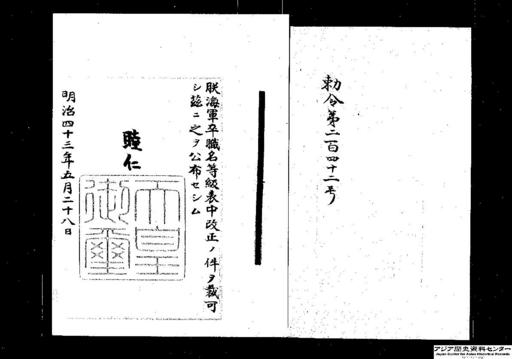 勅令第二百四十二号
朕海軍卒職名等級表中改正ノ件ヲ裁可
シ茲ニ之ヲ公布セシム
睦仁
天皇御璽
明治四十三年五月二十八日
アジア歴史資料センター
Japan Center for Asian Historical Records